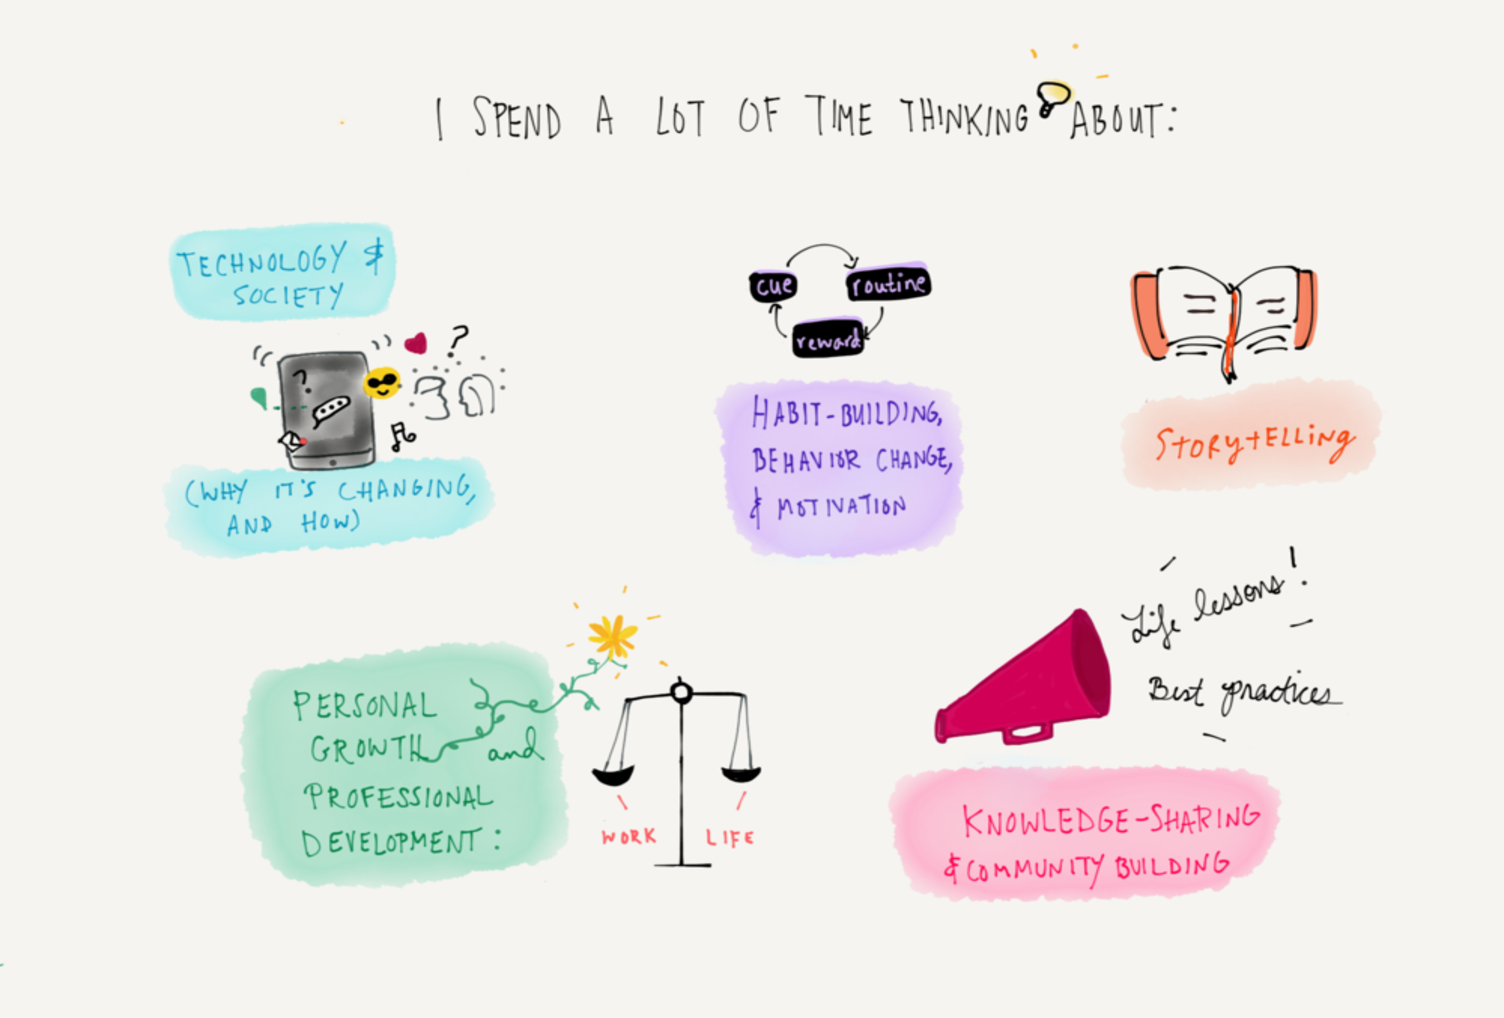 I SPEND A LOT OF TIME THINKING ABOUT:
TECHNOLOGY &
SOCIETY
?
?
(WHY IT'S CHANGING,
AND HOW)
cue
routine
reward
HABIT-BUILDING,
BEHAVIOR CHANGE,
& MOTIVATION
STORYTELLING
PERSONAL
GROWTH and
PROFESSIONAL
DEVELOPMENT:
WORK LIFE
Life lessons!
Best practices
KNOWLEDGE-SHARING
& COMMUNITY BUILDING